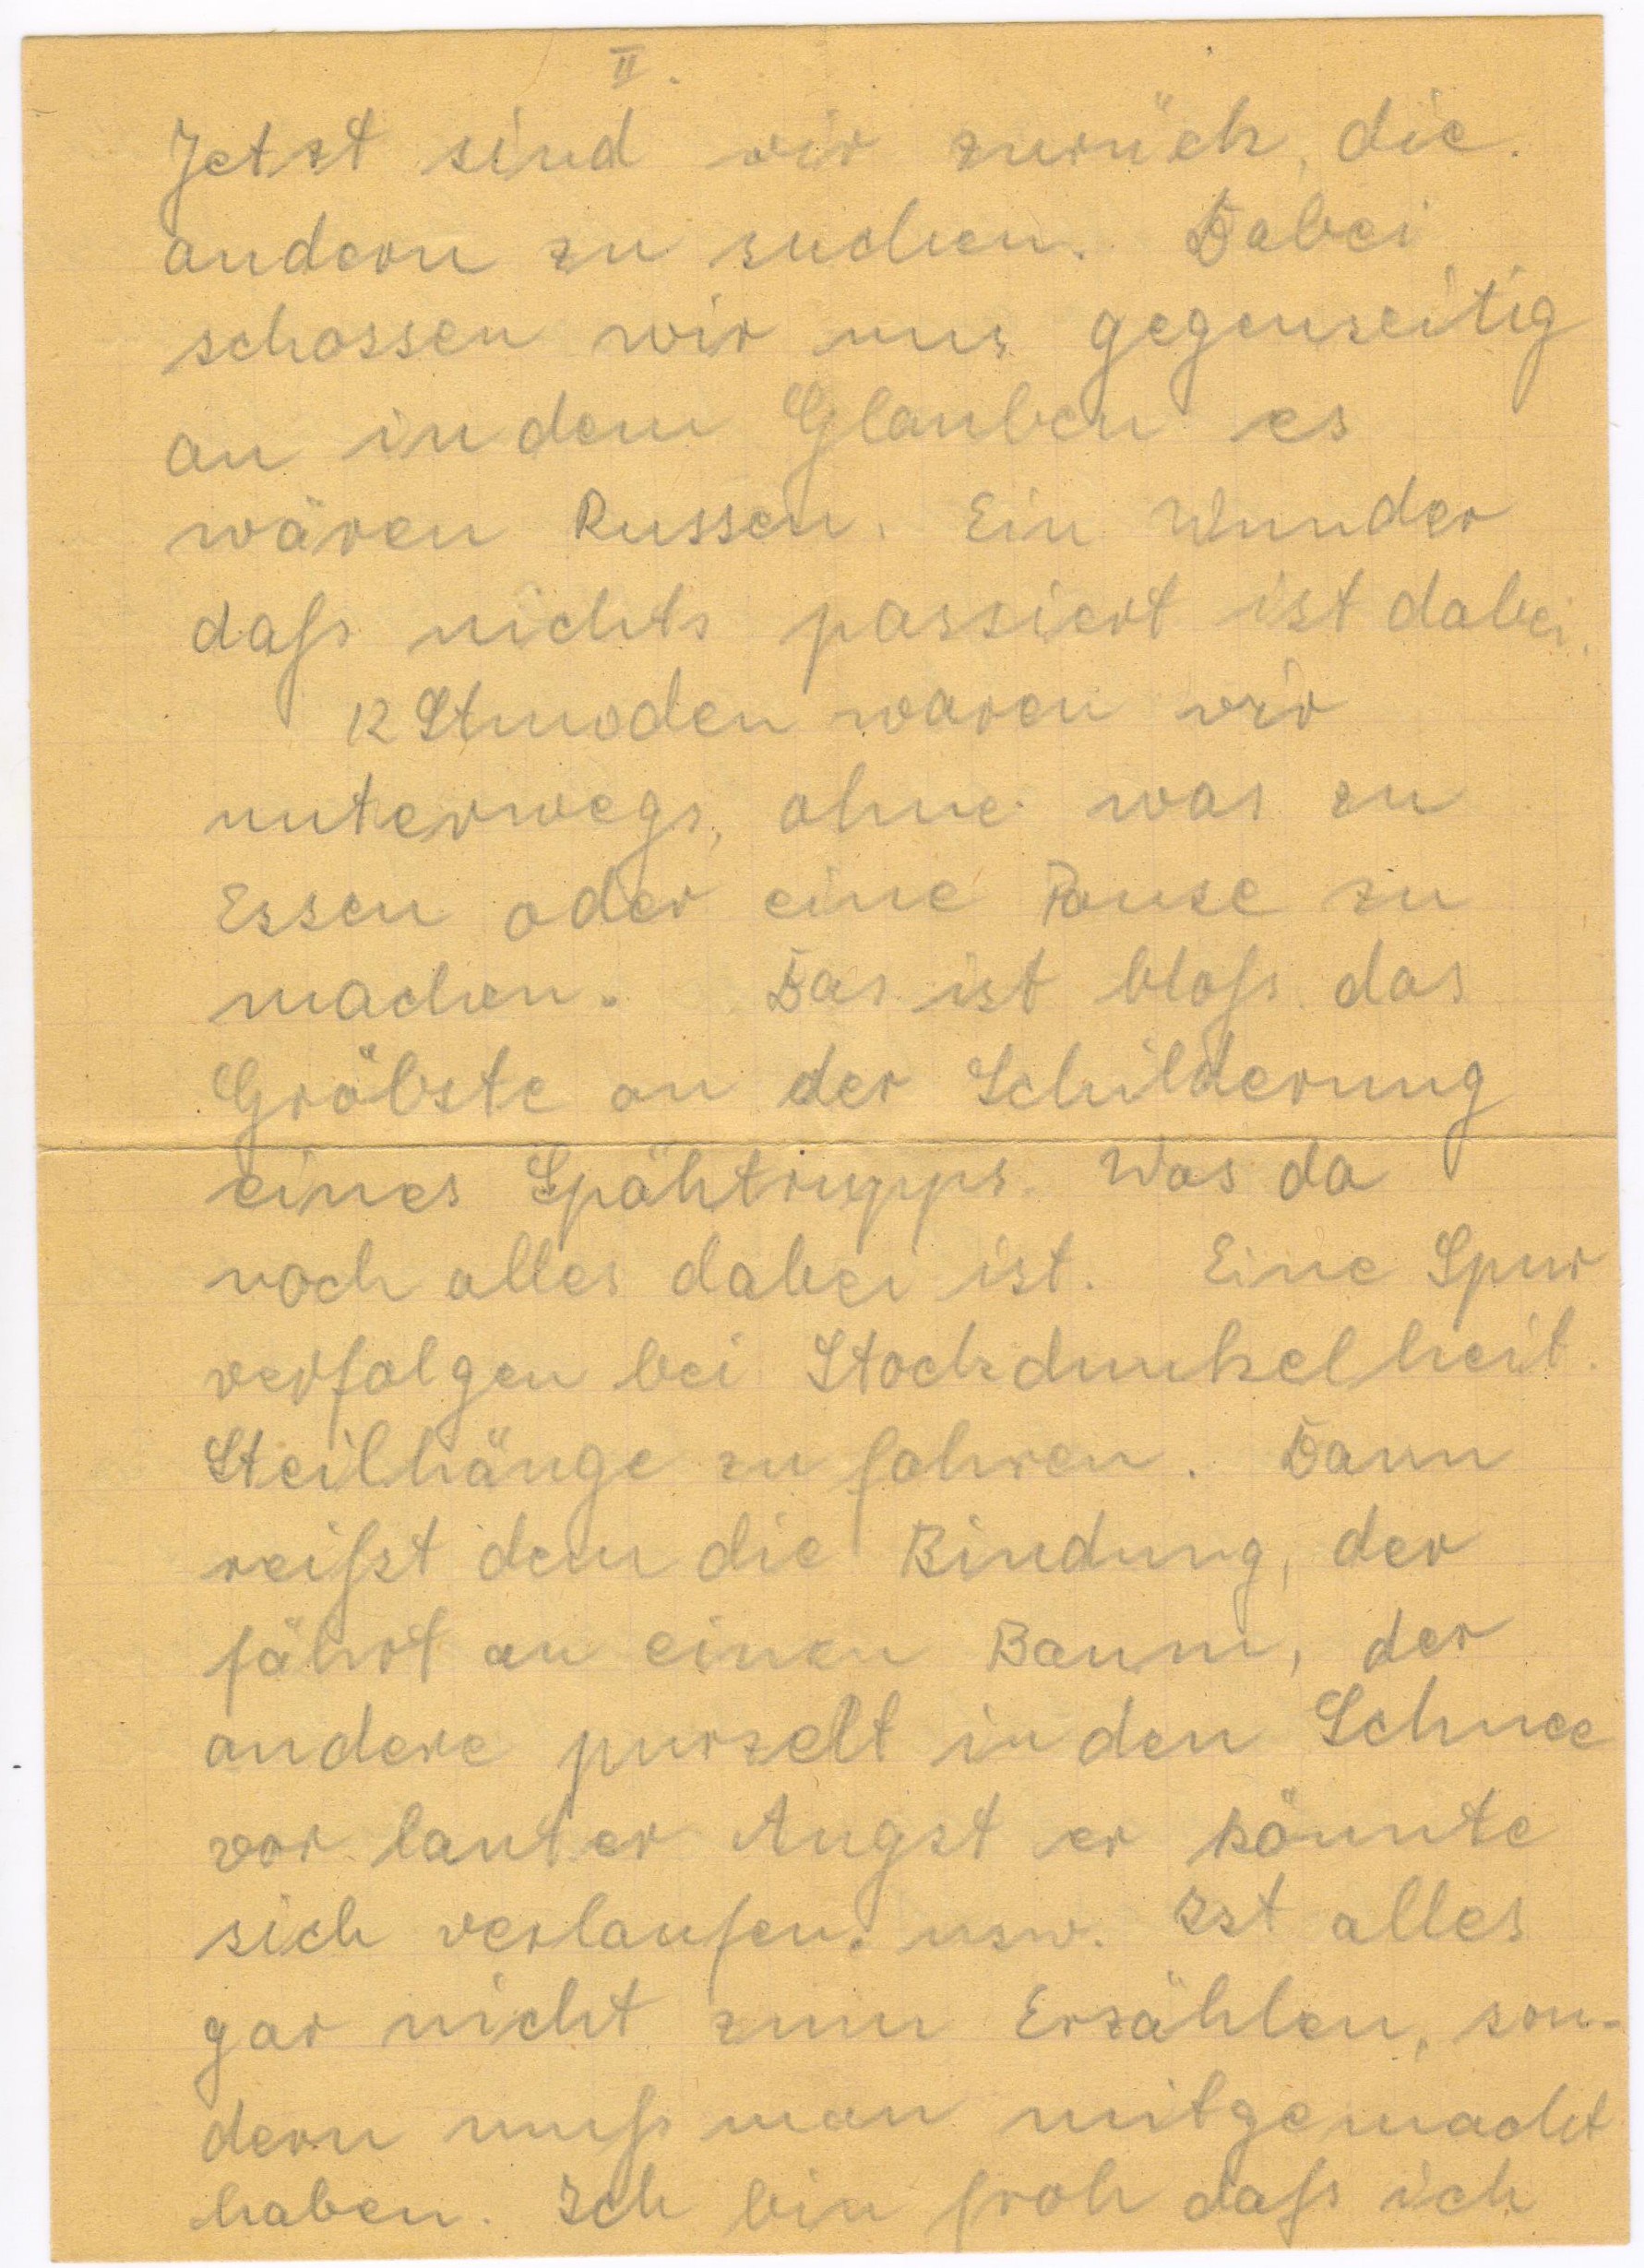 II.
Jetzt sind wir zurück, die
andern zu suchen. Dabei
schossen wir uns gegenseitig
an in dem Glauben es
wären Russen. Ein Wunder
daß nichts passiert ist dabei.
12 Stunden waren wir
unterwegs, ohne was zu
Essen oder eine Pause zu
machen. Das ist bloß das
Gröbste an der Schilderung
eines Spähtrupps. Was da
noch alles dabei ist. Eine Spur
verfolgen bei Stockdunkelheit.
Steilhänge zu fahren. Dann
reißt dem die Bindung, der
fährt an einen Baum, der
andere purzelt in den Schnee
vor lauter Angst er könnte
sich verlaufen. usw. Ist alles
gar nicht zum Erzählen, son-
dern muß man mitgemacht
haben. Ich bin froh daß ich